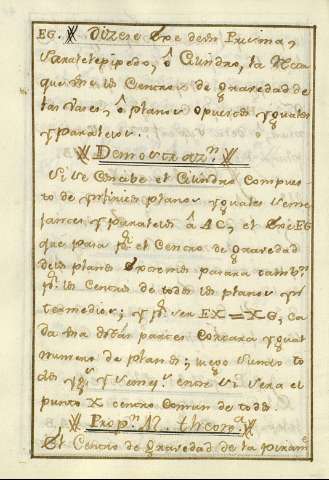 EG. Dizese Exe deste Prisma,
Paralelepipedo, ô Cilindro, la Rec
que une los Centros de gravedad de
las vases, ô planos opuestos yguales
y paralelos.
Demostraz.n
Si se concibe el Cilindro compues
to de ynfinitos planos yguales seme
jantes y paralelos â AC, el Exe EG
que pasa p.r el Centro de gravedad
de los planos Extremos pasara tamb.n
p.r los Centros de todos los planos yn
termedios; y p.r ser EX=XG, ca
da una destas partes Cortará ygual
numero de planos; luego Junto to
dos entre si sera el
punto X centro comun de todos.
Prop.n 11. theorema
El Centro de Gravedad de la piram